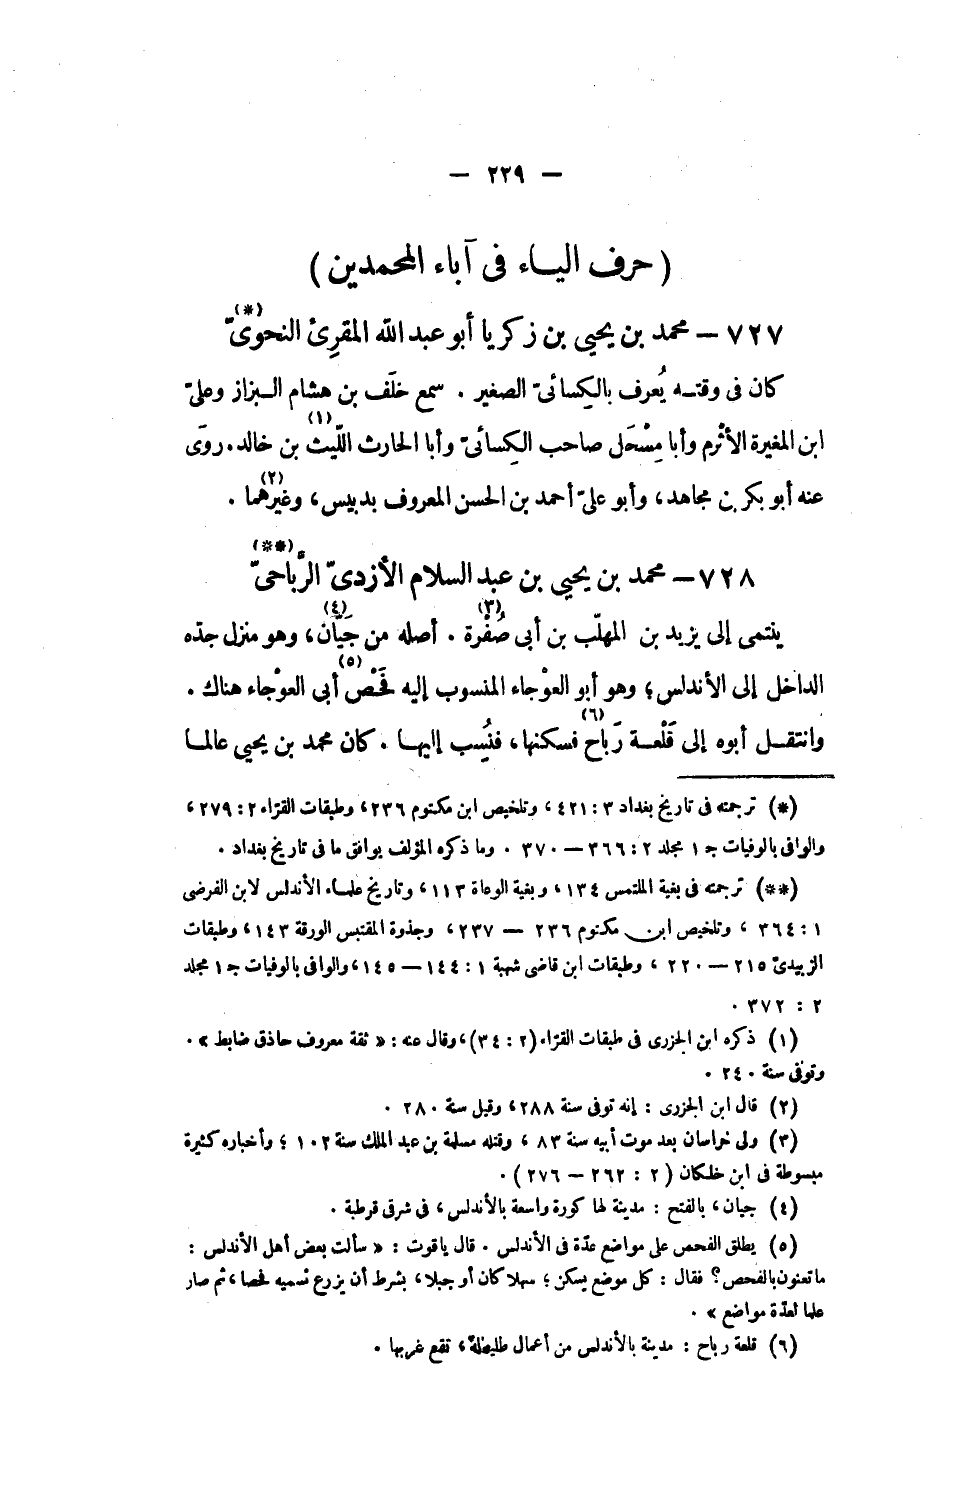 — ٢٢٩ —
( حرف اليـاء فى آباء المحمدين )
٧٢٧ – محمد بن يحيى بن زكريا أبو عبد الله المقرِئ النحوىّ (*)
كان فى وقتـه يُعرف بالكِسائىّ الصغير . سمع خلَف بن هشام البزاز وعلىّ
ابن المغيرة الأثْرم وأبا مِسْحَل صاحب الكِسائىّ وأبا الحارث اللّيث (١) بن خالد. روَى
عنه أبو بكر بن مجاهد، وأبو علىّ أحمد بن الحسن المعروف بدبيس، وغيرهما (٢) .
٧٢٨ – محمد بن يحيى بن عبد السلام الأزدىّ الرَّباحىّ (**)
ينتمى إلى يزيد بن المهلّب بن أبى صُفْرة (٣) . أصله من جَيّان (٤)، وهو منزل جدّه
الداخل إلى الأندلس؛ وهو أبو العوْجاء المنسوب إليه فَحْص (٥) أبى العوْجاء هناك .
وانتقـل أبوه إلى قَلْعـة رَباح (٦) فسكنها، فنُسِب إليهـا . كان محمد بن يحيى عالمـا
(*) ترجمته فى تاريخ بغداد ٣ : ٤٢١، وتلخيص ابن مكتوم ٢٣٦، وطبقات القرّاء ٢ : ٢٧٩،
والوافى بالوفيات جـ ١ مجلد ٢ : ٣٦٦ – ٣٧٠ . وما ذكره المؤلف يوافق ما فى تاريخ بغداد .
(**) ترجمته فى بغية الملتمس ١٣٤، وبغية الوعاة ١١٣، وتاريخ علمـاء الأندلس لابن الفرضى
١ : ٣٦٤، وتلخيص ابن مكتوم ٢٣٦ – ٢٣٧، وجذوة المقتبس الورقة ١٤٣، وطبقات
الزبيدىّ ٢١٥ – ٢٢٠، وطبقات ابن قاضى شهبة ١ : ١٤٤ – ١٤٥، والوافى بالوفيات جـ ١ مجلد
٢ : ٣٧٢ .
(١) ذكره ابن الجزرى فى طبقات القرّاء (٢ : ٣٤)، وقال عنه : « ثقة معروف حاذق ضابط » .
وتوفى سنة ٢٤٠ .
(٢) قال ابن الجزرى : إنه توفى سنة ٢٨٨، وقيل سنة ٢٨٠ .
(٣) ولى خراسان بعد موت أبيه سنة ٨٣ ، وقتله مسلمة بن عبد الملك سنة ١٠٢ ؛ وأخباره كثيرة
مبسوطة فى ابن خلكان (٢ : ٢٦٢ – ٢٧٦) .
(٤) جيان، بالفتح : مدينة لها كورة واسعة بالأندلس، فى شرقى قرطبة .
(٥) يطلق الفحص على مواضع عدّة فى الأندلس . قال ياقوت : « سألت بعض أهل الأندلس :
ما تعنون بالفحص ؟ فقال : كل موضع يسكن ؛ سهلا كان أو جبلا، بشرط أن يزرع نسميه فحصا، ثم صار
علما لعدّة مواضع » .
(٦) قلعة رباح : مدينة بالأندلس من أعمال طليطلة، تقع غربها .